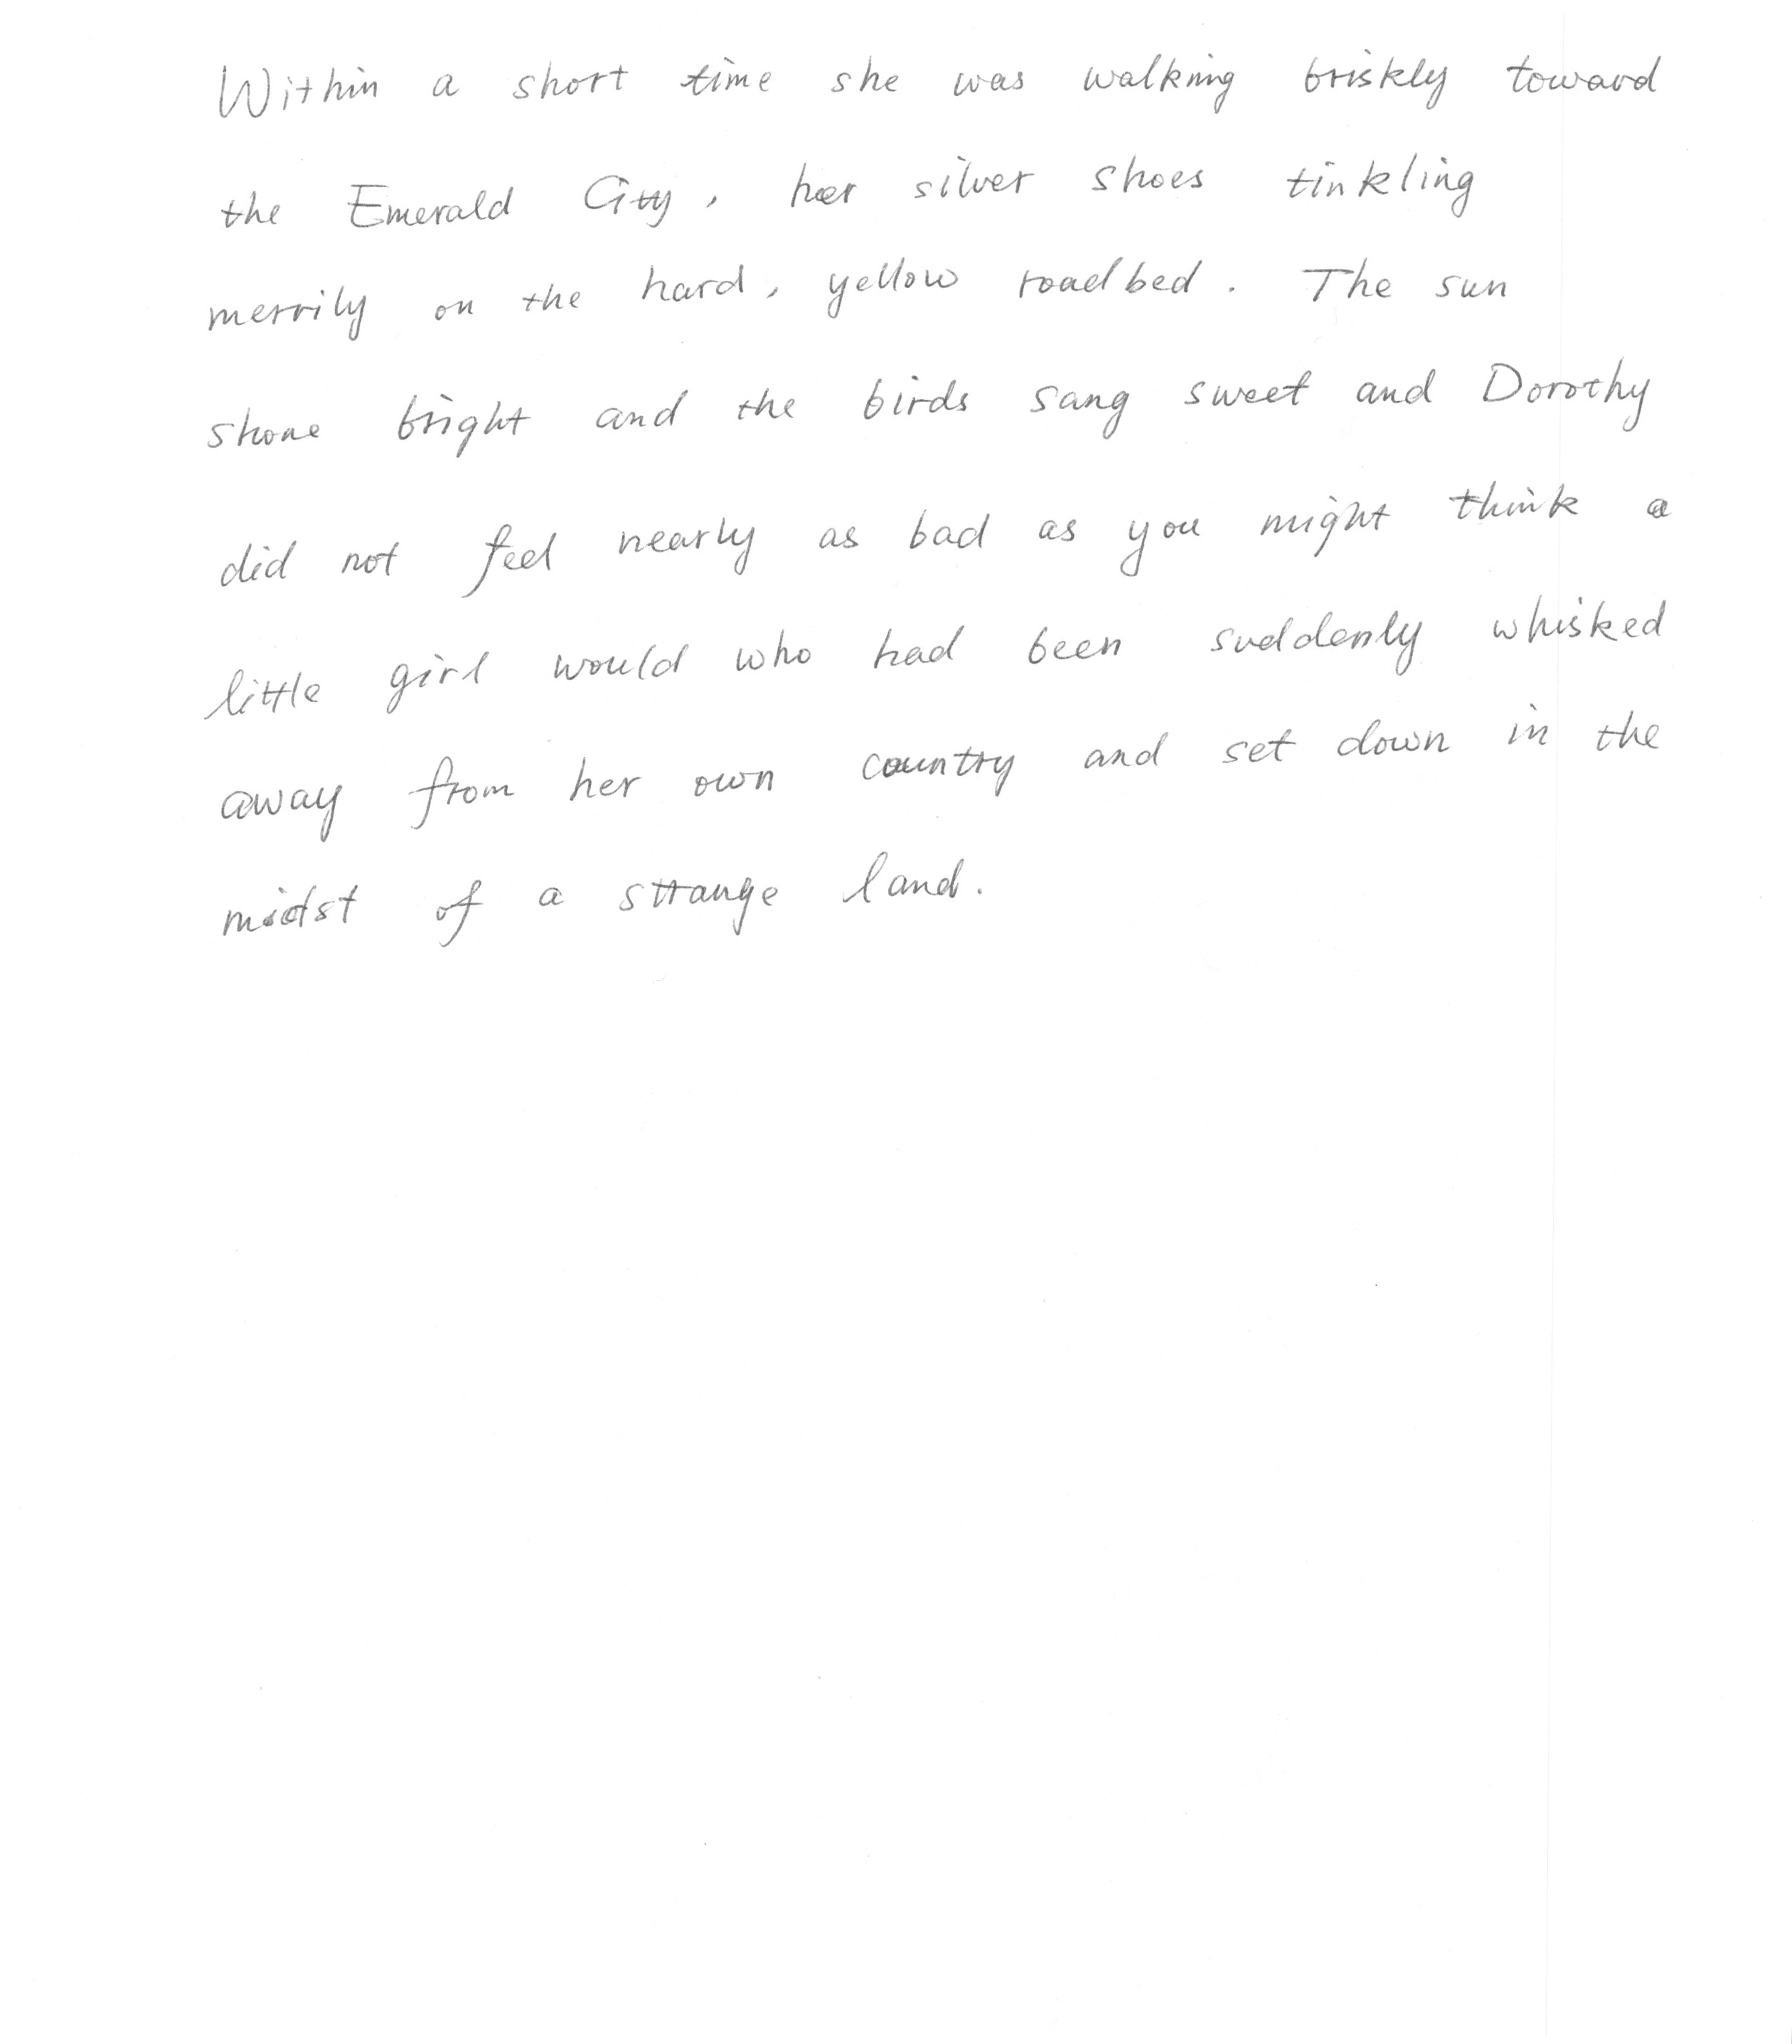 Within a short time she was walking briskly toward
the Emerald City, her silver shoes tinkling
merrily on the hard, yellow roadbed. The sun
shone bright and the birds sang sweet and Dorothy
did not feel nearly as bad as you might think a
little girl would who had been suddenly whisked
away from her own country and set down in the
midst of a strange land.